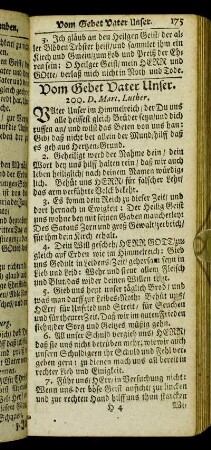 Vom Gebet Vater Unser. 175
3. Ich gläub an den Heilgen Geist der als
ler Blöden Tröster heist/ und sammlet ihm ein
Kirch auf Gmeinschaft
sen seim: O Heilger Geist/ mein HERR und
GOtt/ verlaß mich nicht in Noth und Tode.
Vom Gebet Vater Unser.
209. D. Mart. Luther.
VAter Unser im Himmelreich/ der Du uns
alle heissest gleich Brüder seyn/ und dich
ruffen an/ und wilt das Beten von uns han:
Geb/ daß nicht bet allein der Mund/ hilf daß
es geh aus Hertzen-Grund.
2. Geheilget werd der Nahme dein/ dein
Wort bey uns hilf halten rein/ daß wir auch
leben heiliglich/ nach deinem Namen würdig-
lich. Behüt uns HERR für falscher Lehr/
das arm verführte Volk bekehr.
3. Es komm dein Reich zu dieser Zeit/ und
dort hernach in Ewigkeit: Der Heilge Geist
uns wohne bey mit seinen Gaben mancherley:
Des Satans Zorn und groß Gewalt zerbrich/
für ihm dein Kirch erhalt.
4. Dein Will gescheh/ HERR GOtt zu-
gleich auf Erden wie im Himmelreich: Gieb
uns Gedult in Leidens Zeit/ gehorsam seyn in
Lieb und Leid: Wehr und steur allem Fleisch
und Blut/ das wider deinen Willen thut.
5. Gieb uns heut unser täglich Brod/ und
was man darff zur Leibes-Noth: Behüt uns/
HErr/ für Unfried und Streit/ für Seuchen
und für theurer Zeit/ Daß wir in gutem Frieden
stehn/ der Sorg und Geitzes müßig gehn.
6. All unser Schuld vergieb uns/ HERR/
daß sie uns nicht betrüben mehr/ wie wir auch
unsern Schuldigern ihr Schuld und Fehl ver-
geben gern: zu dienen mach uns all bereit in
rechter Lieb und Einigkeit.
7. Führ uns/ HErr/ in Versuchung nicht/
Wenn uns der böse Geist anficht/ zur lincken
und zur rechten Hand hilf uns thun starcken
H 4 Wi-